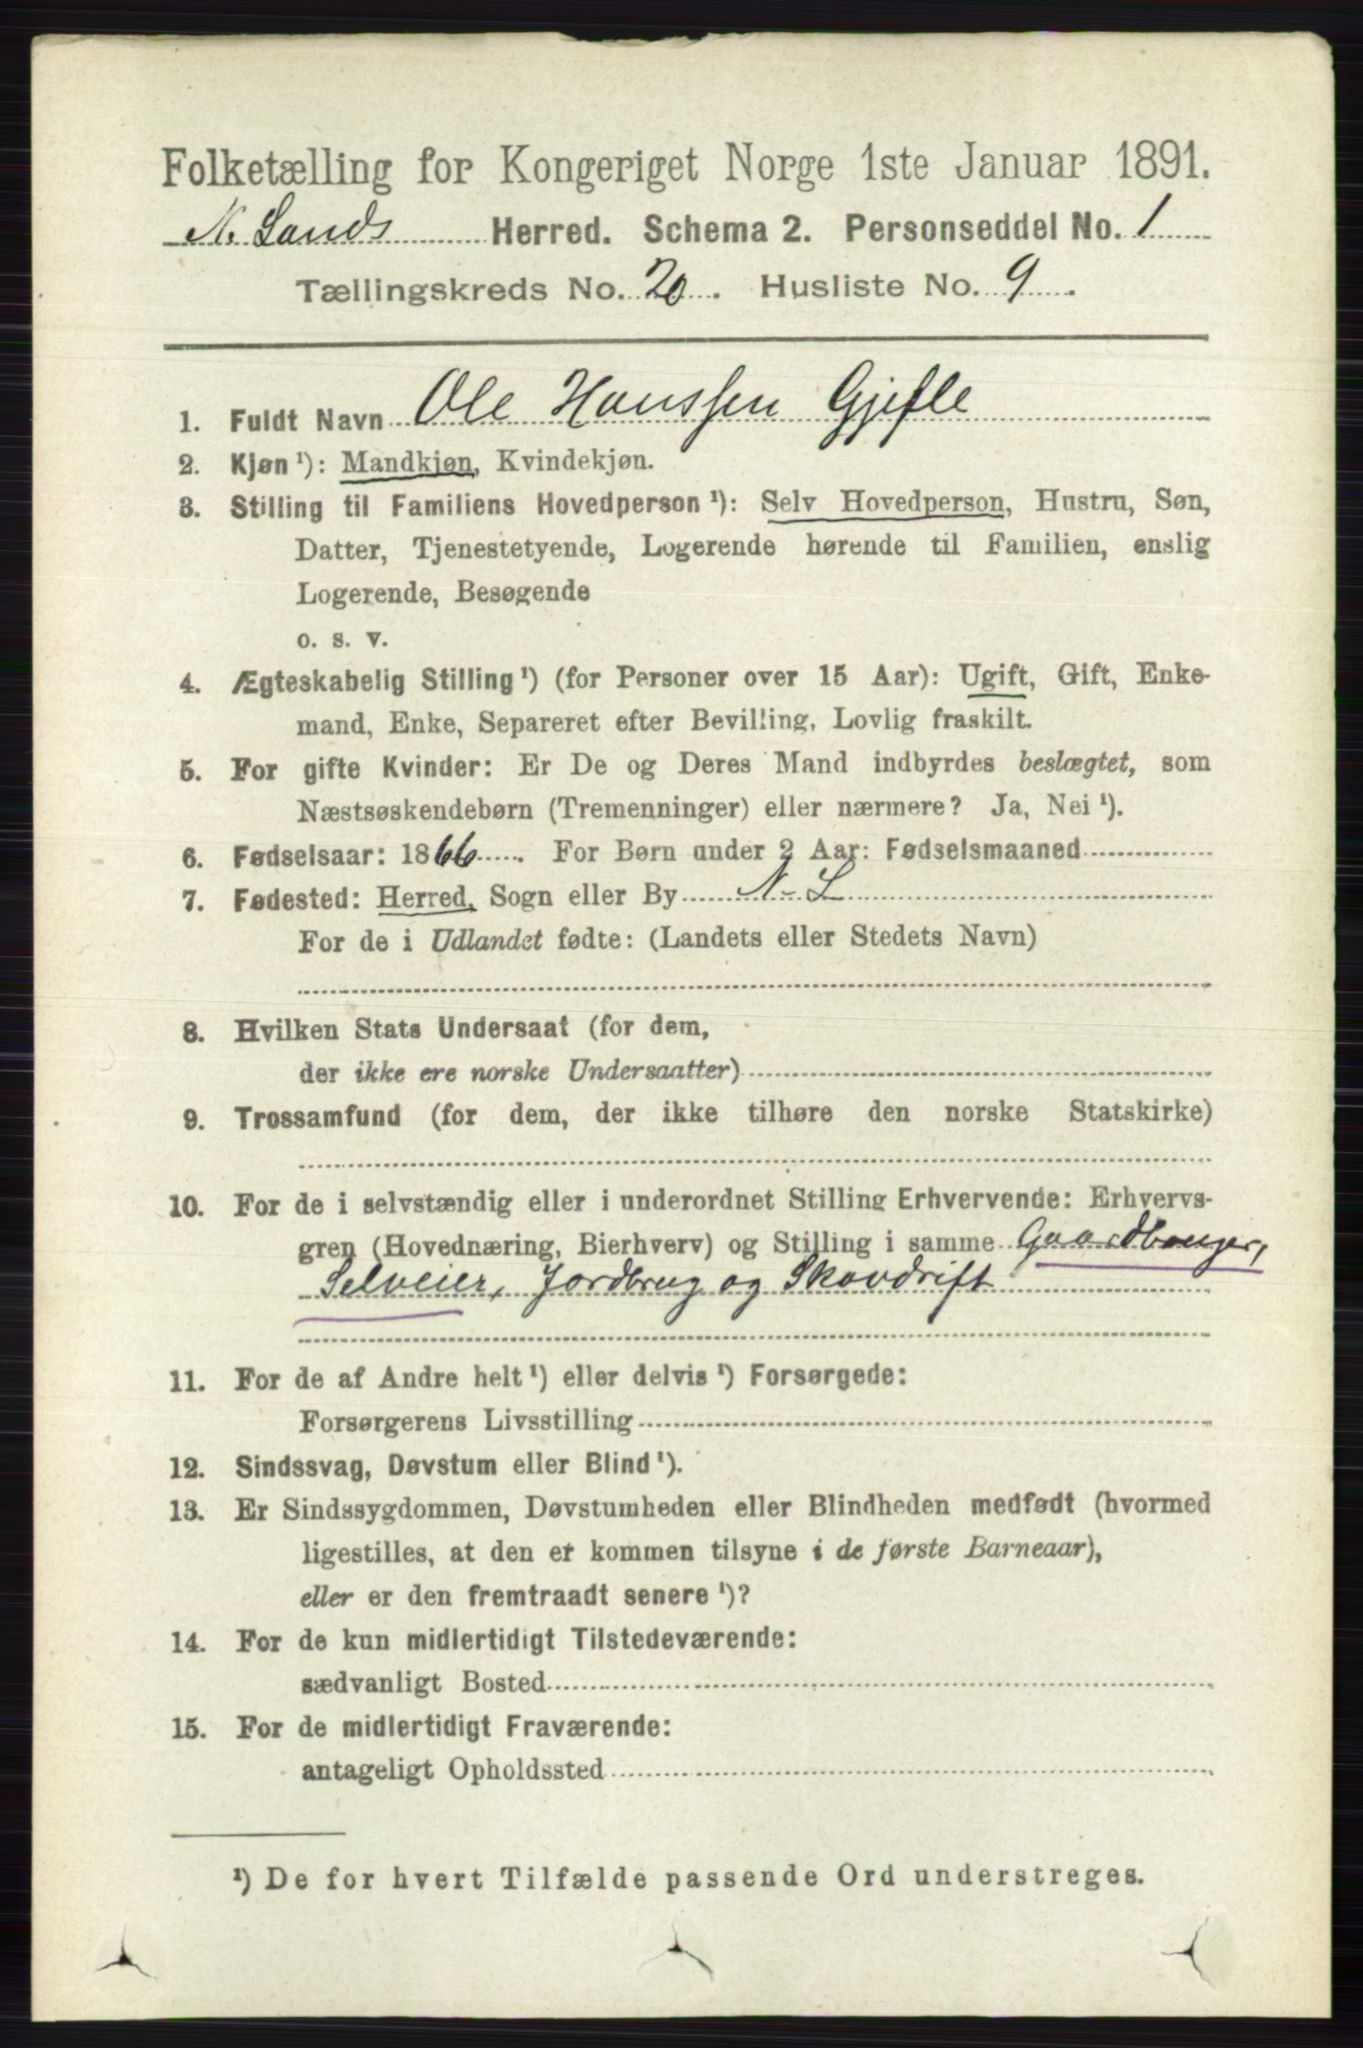 Folketælling for Kongeriget Norge 1ste Januar 1891.
N. Lands Herred. Schema 2. Personseddel No. 1
Tællingskreds No. 20. Husliste No. 9.
1. Fuldt Navn Ole Hanssen Gjefle
2. Kjøn ¹): Mandkjøn, Kvindekjøn.
3. Stilling til Familiens Hovedperson ¹): Selv Hovedperson, Hustru, Søn,
Datter, Tjenestetyende, Logerende hørende til Familien, enslig
Logerende, Besøgende
o. s. v.
4. Ægteskabelig Stilling ¹) (for Personer over 15 Aar): Ugift, Gift, Enke-
mand, Enke, Separeret efter Bevilling, Lovlig fraskilt.
5. For gifte Kvinder: Er De og Deres Mand indbyrdes beslægtet, som
Næstsøskendebørn (Tremenninger) eller nærmere? Ja, Nei ¹).
6. Fødselsaar: 1866. For Børn under 2 Aar: Fødselsmaaned
7. Fødested: Herred, Sogn eller By N-L
For de i Udlandet fødte: (Landets eller Stedets Navn)
8. Hvilken Stats Undersaat (for dem,
der ikke ere norske Undersaatter)
9. Trossamfund (for dem, der ikke tilhøre den norske Statskirke)
10. For de i selvstændig eller i underordnet Stilling Erhvervende: Erhvervs-
gren (Hovednæring, Bierhverv) og Stilling i samme Gaardbruger,
Selveier, Jordbrug og Skovdrift
11. For de af Andre helt ¹) eller delvis ¹) Forsørgede:
Forsørgerens Livsstilling
12. Sindssvag, Døvstum eller Blind ¹).
13. Er Sindssygdommen, Døvstumheden eller Blindheden medfødt (hvormed
ligestilles, at den er kommen tilsyne i de første Barneaar),
eller er den fremtraadt senere ¹)?
14. For de kun midlertidigt Tilstedeværende:
sædvanligt Bosted
15. For de midlertidigt Fraværende:
antageligt Opholdssted
¹) De for hvert Tilfælde passende Ord understreges.